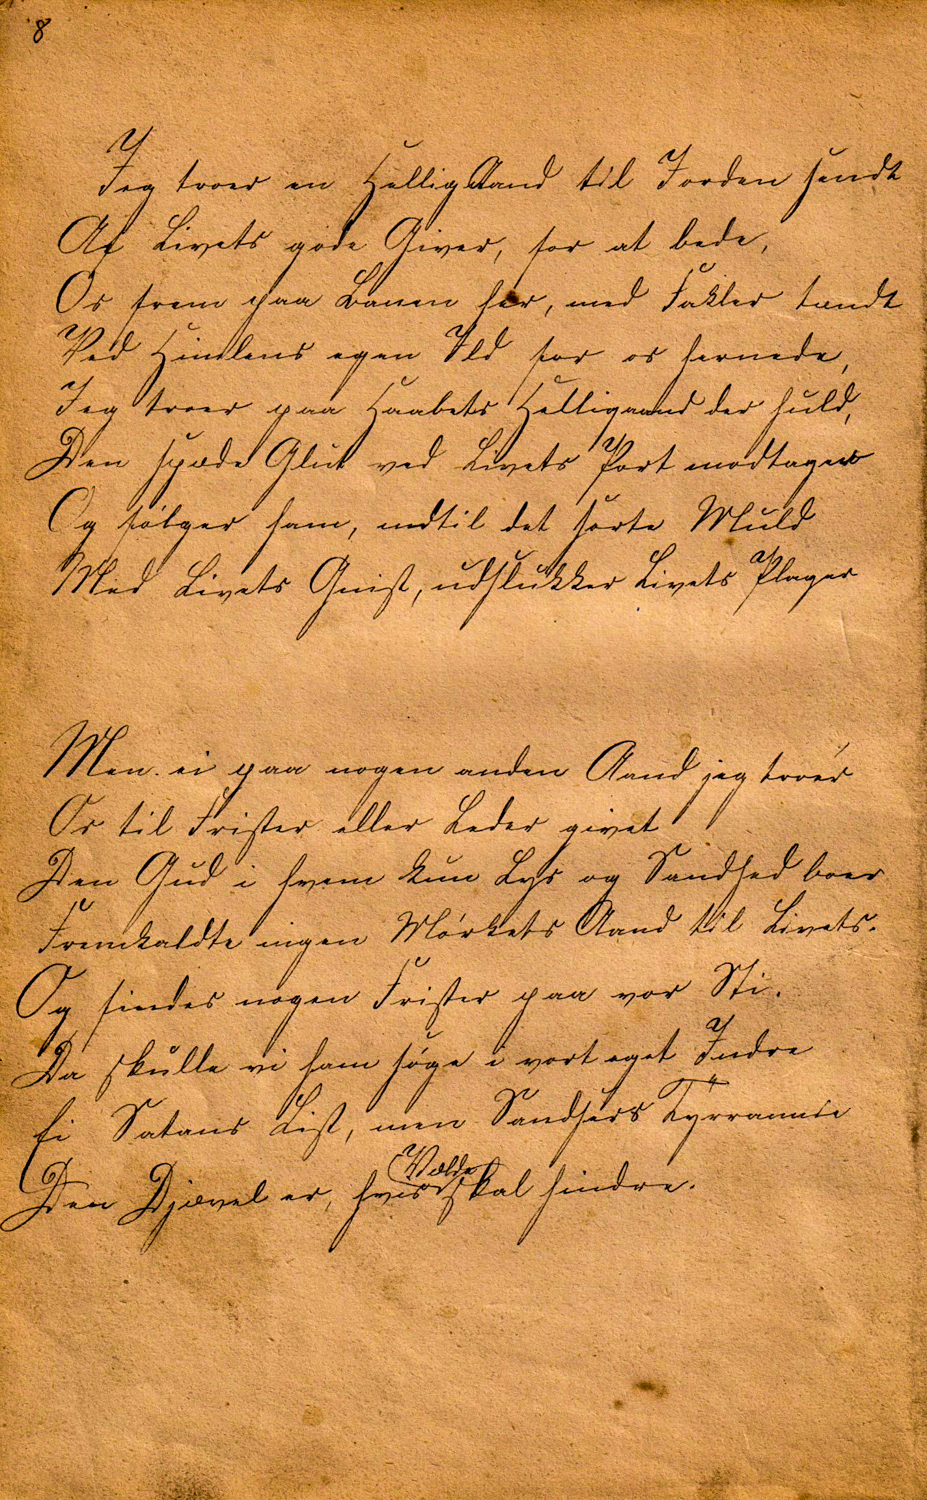 8
Jeg troer en Hellig Aand til Jorden sendt
Af Livets gode Giver, for at lede,
Os frem paa Banen her, med Fakler tændt
Ved Himlens egen Ild for os hernede,
Jeg troer paa Haabets Helligaand der huld,
Den spæde Glut ved Livets Port modtager
Og følger ham, indtil det sorte Muld
Med Livets Gnist, udslukker Livets Plager
Men ei paa nogen anden Aand jeg troer
Os til Frister eller Leder givet
Den Gud i hvem kun Lys og Sandhed boer
Fremkaldte ingen Mørkets Aand til Livets.
Og findes nogen Frister paa vor Sti.
Da skulle vi ham søge i vort eget Indre
Ei Satans List, men Sandsers Tyrannie
Den Djævel er, hvis Vælde skal hindre.